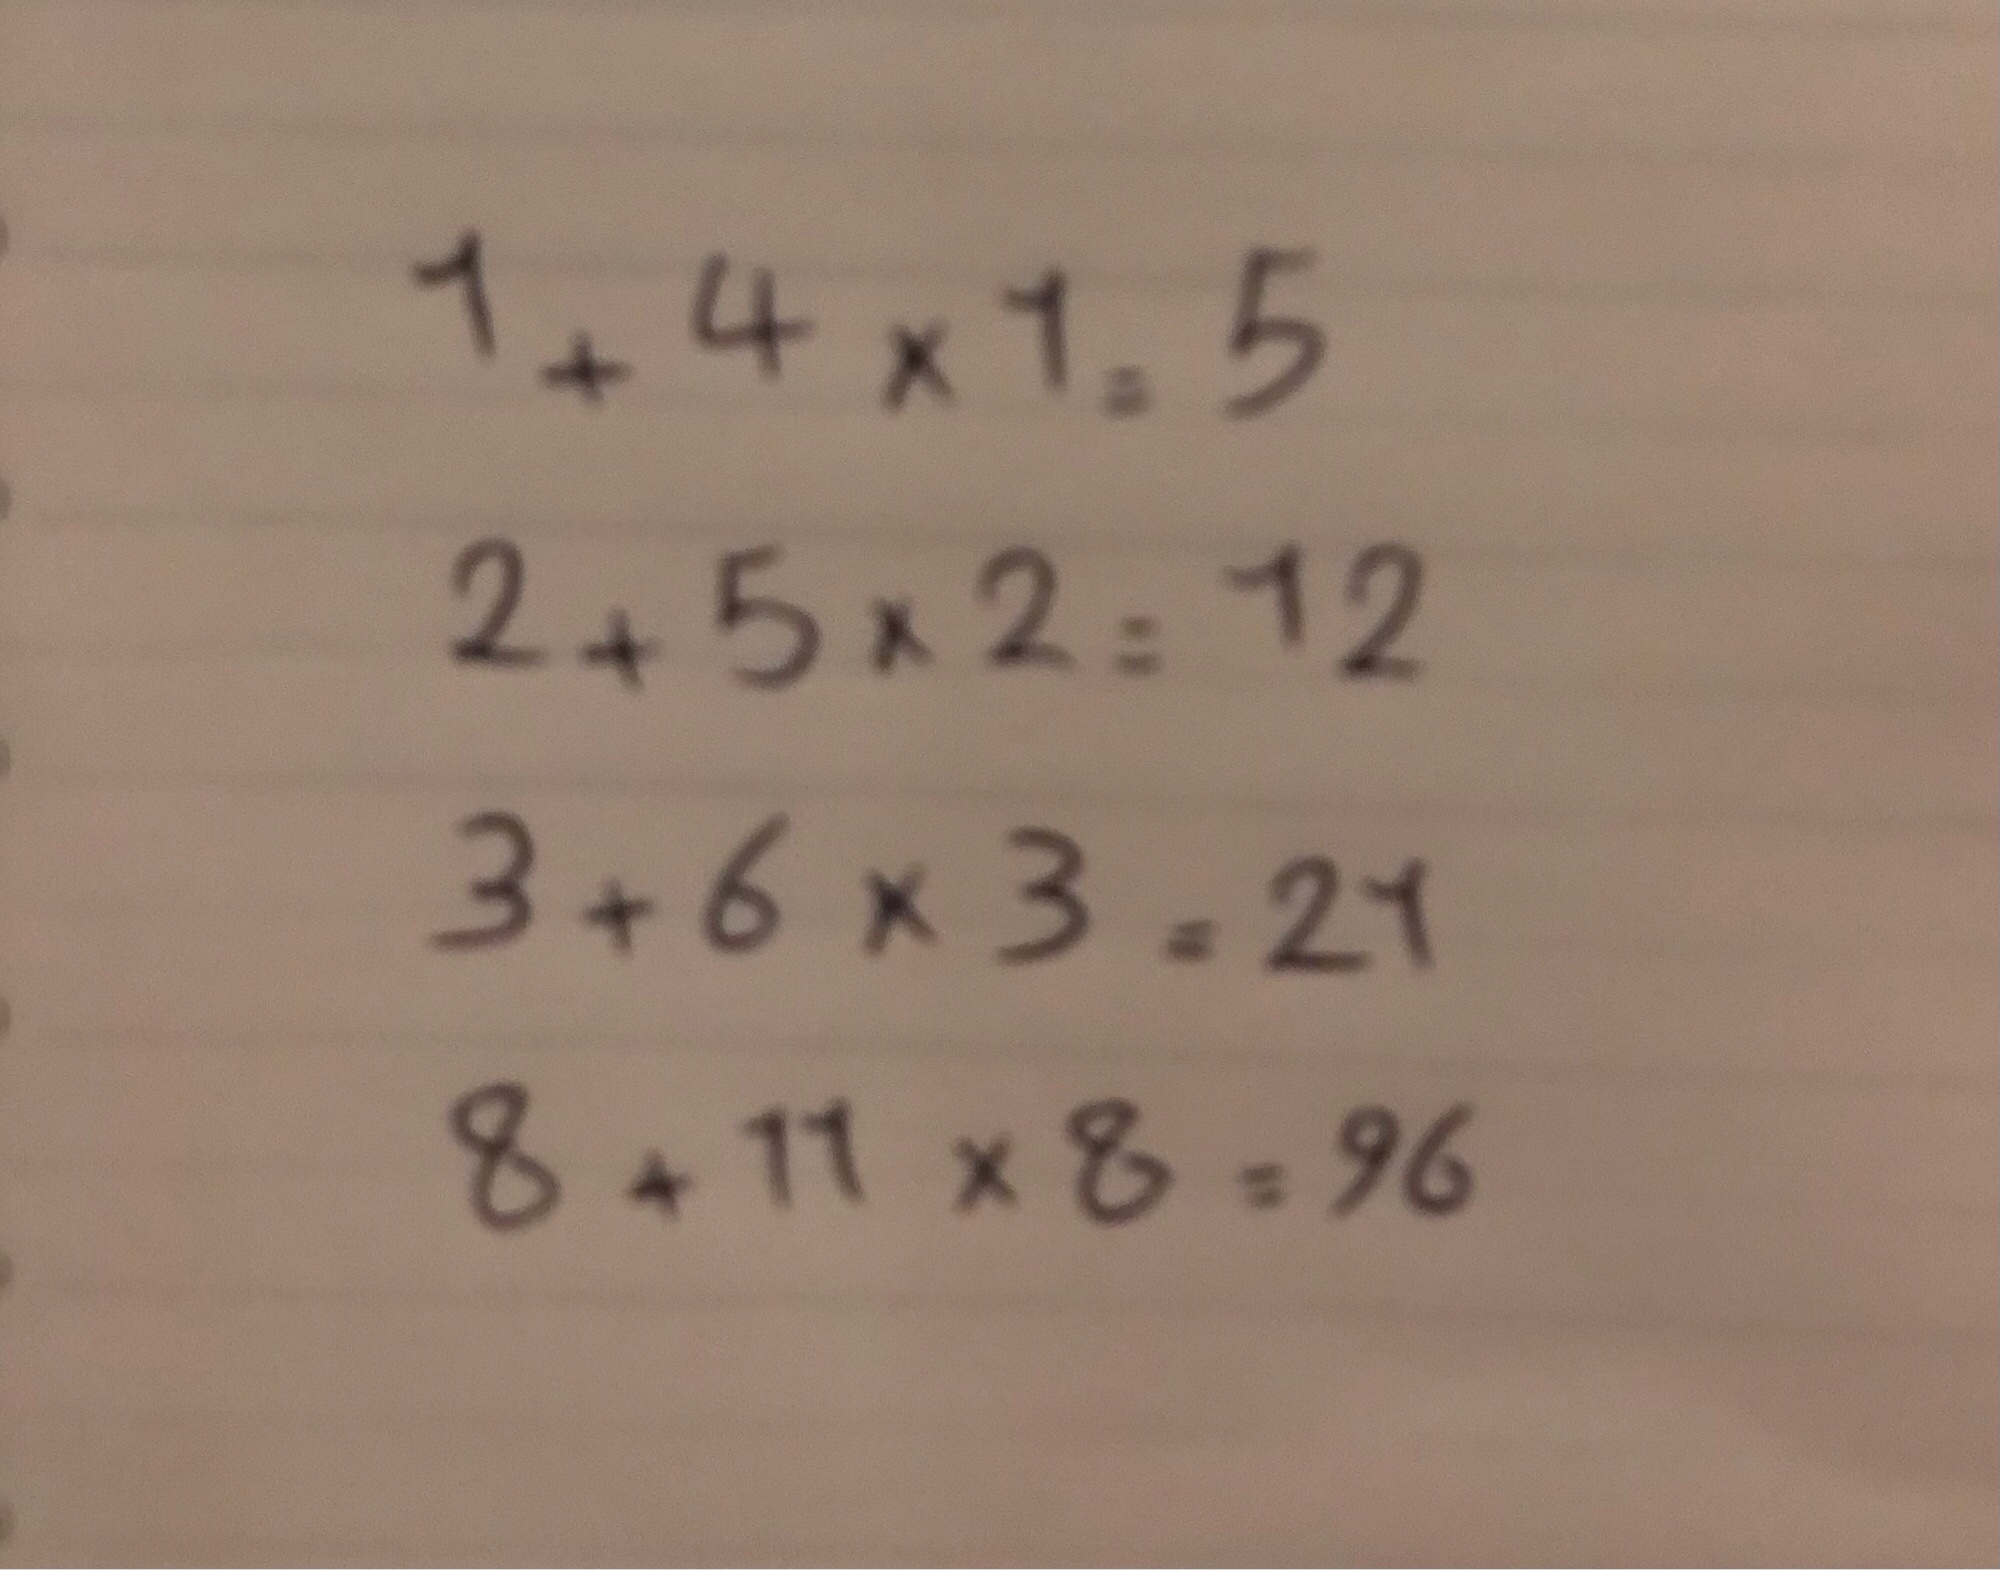 1 + 4 x 1 = 5
2 + 5 x 2 = 12
3 + 6 x 3 = 21
8 + 11 x 8 = 96